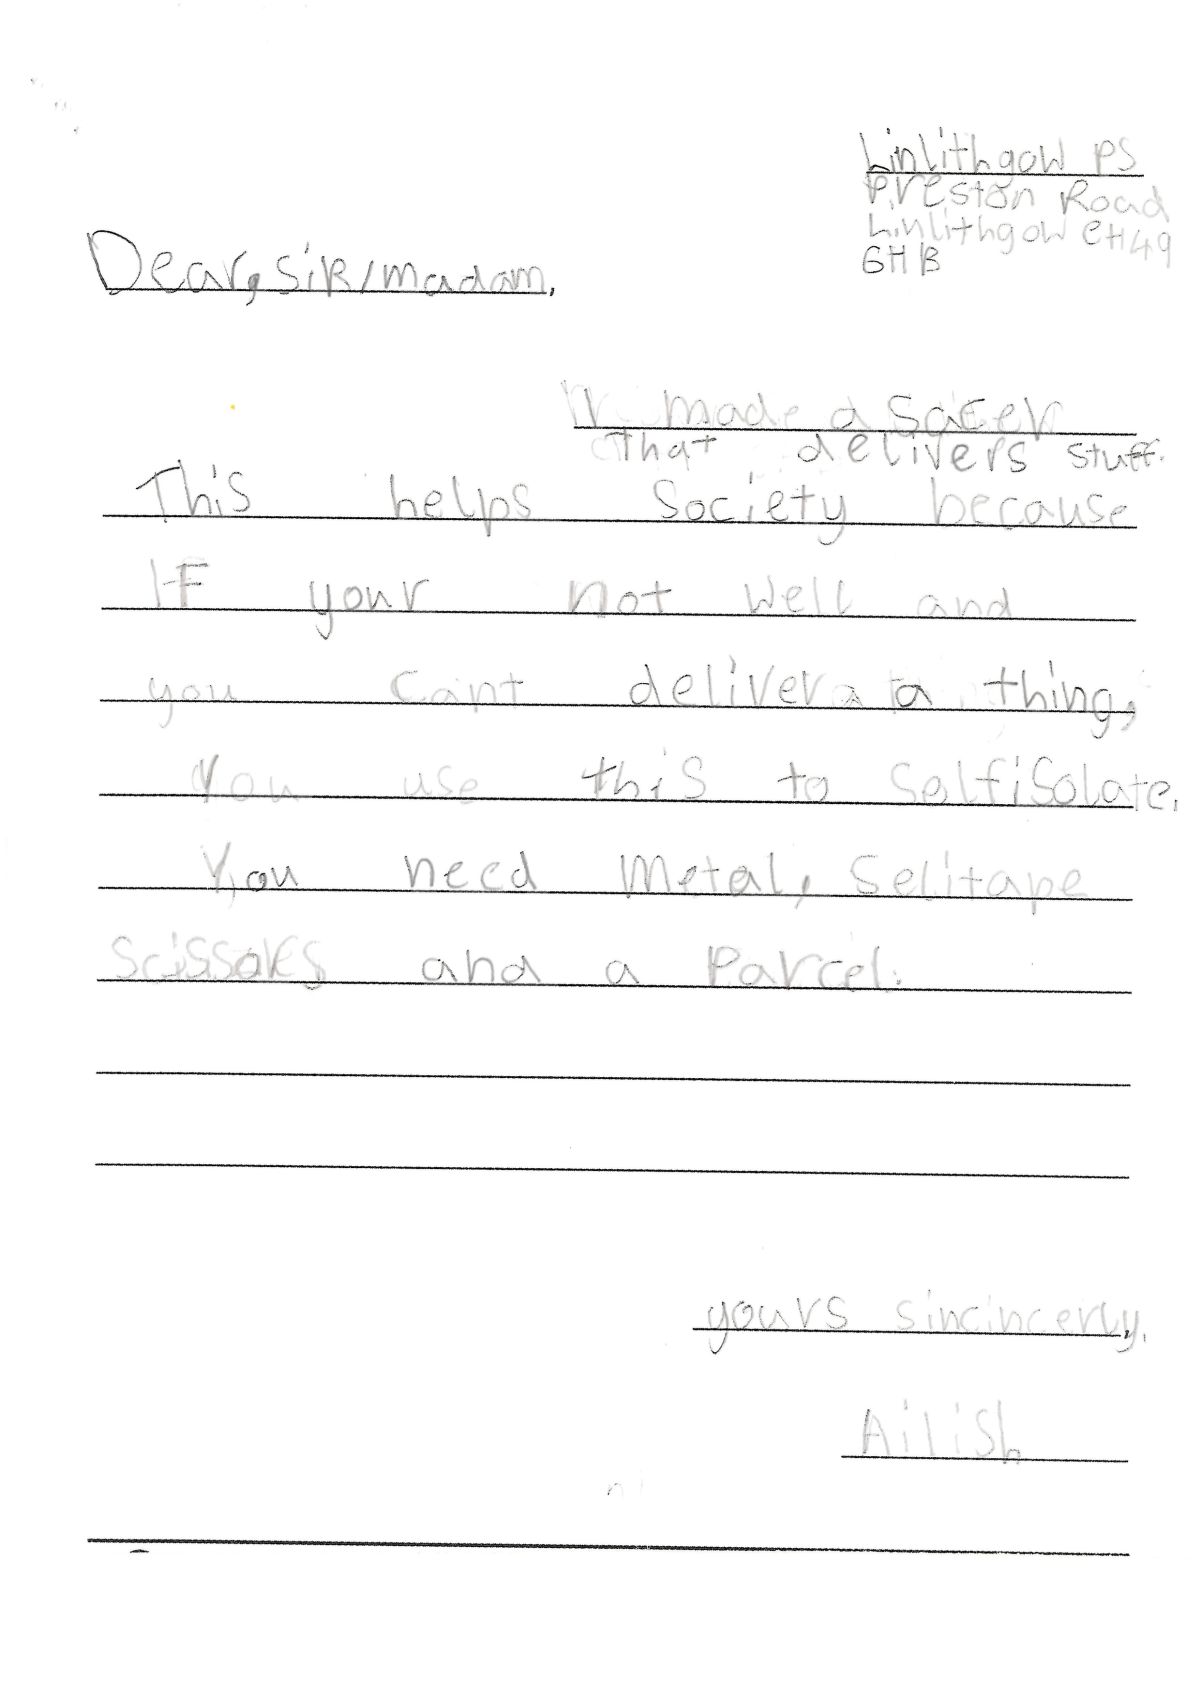 Linlithgow PS
Preston Road
Linlithgow EH49
6HB
Dear, Sir/madam,
I made a Sacer
that delivers stuff.
This helps Society because
IF your not well and
you cant deliver a thing,
You use this to Selfisolate.
You need Metal, Selitape
Scissors and a Parcel.
yours sincincerly,
Ailish